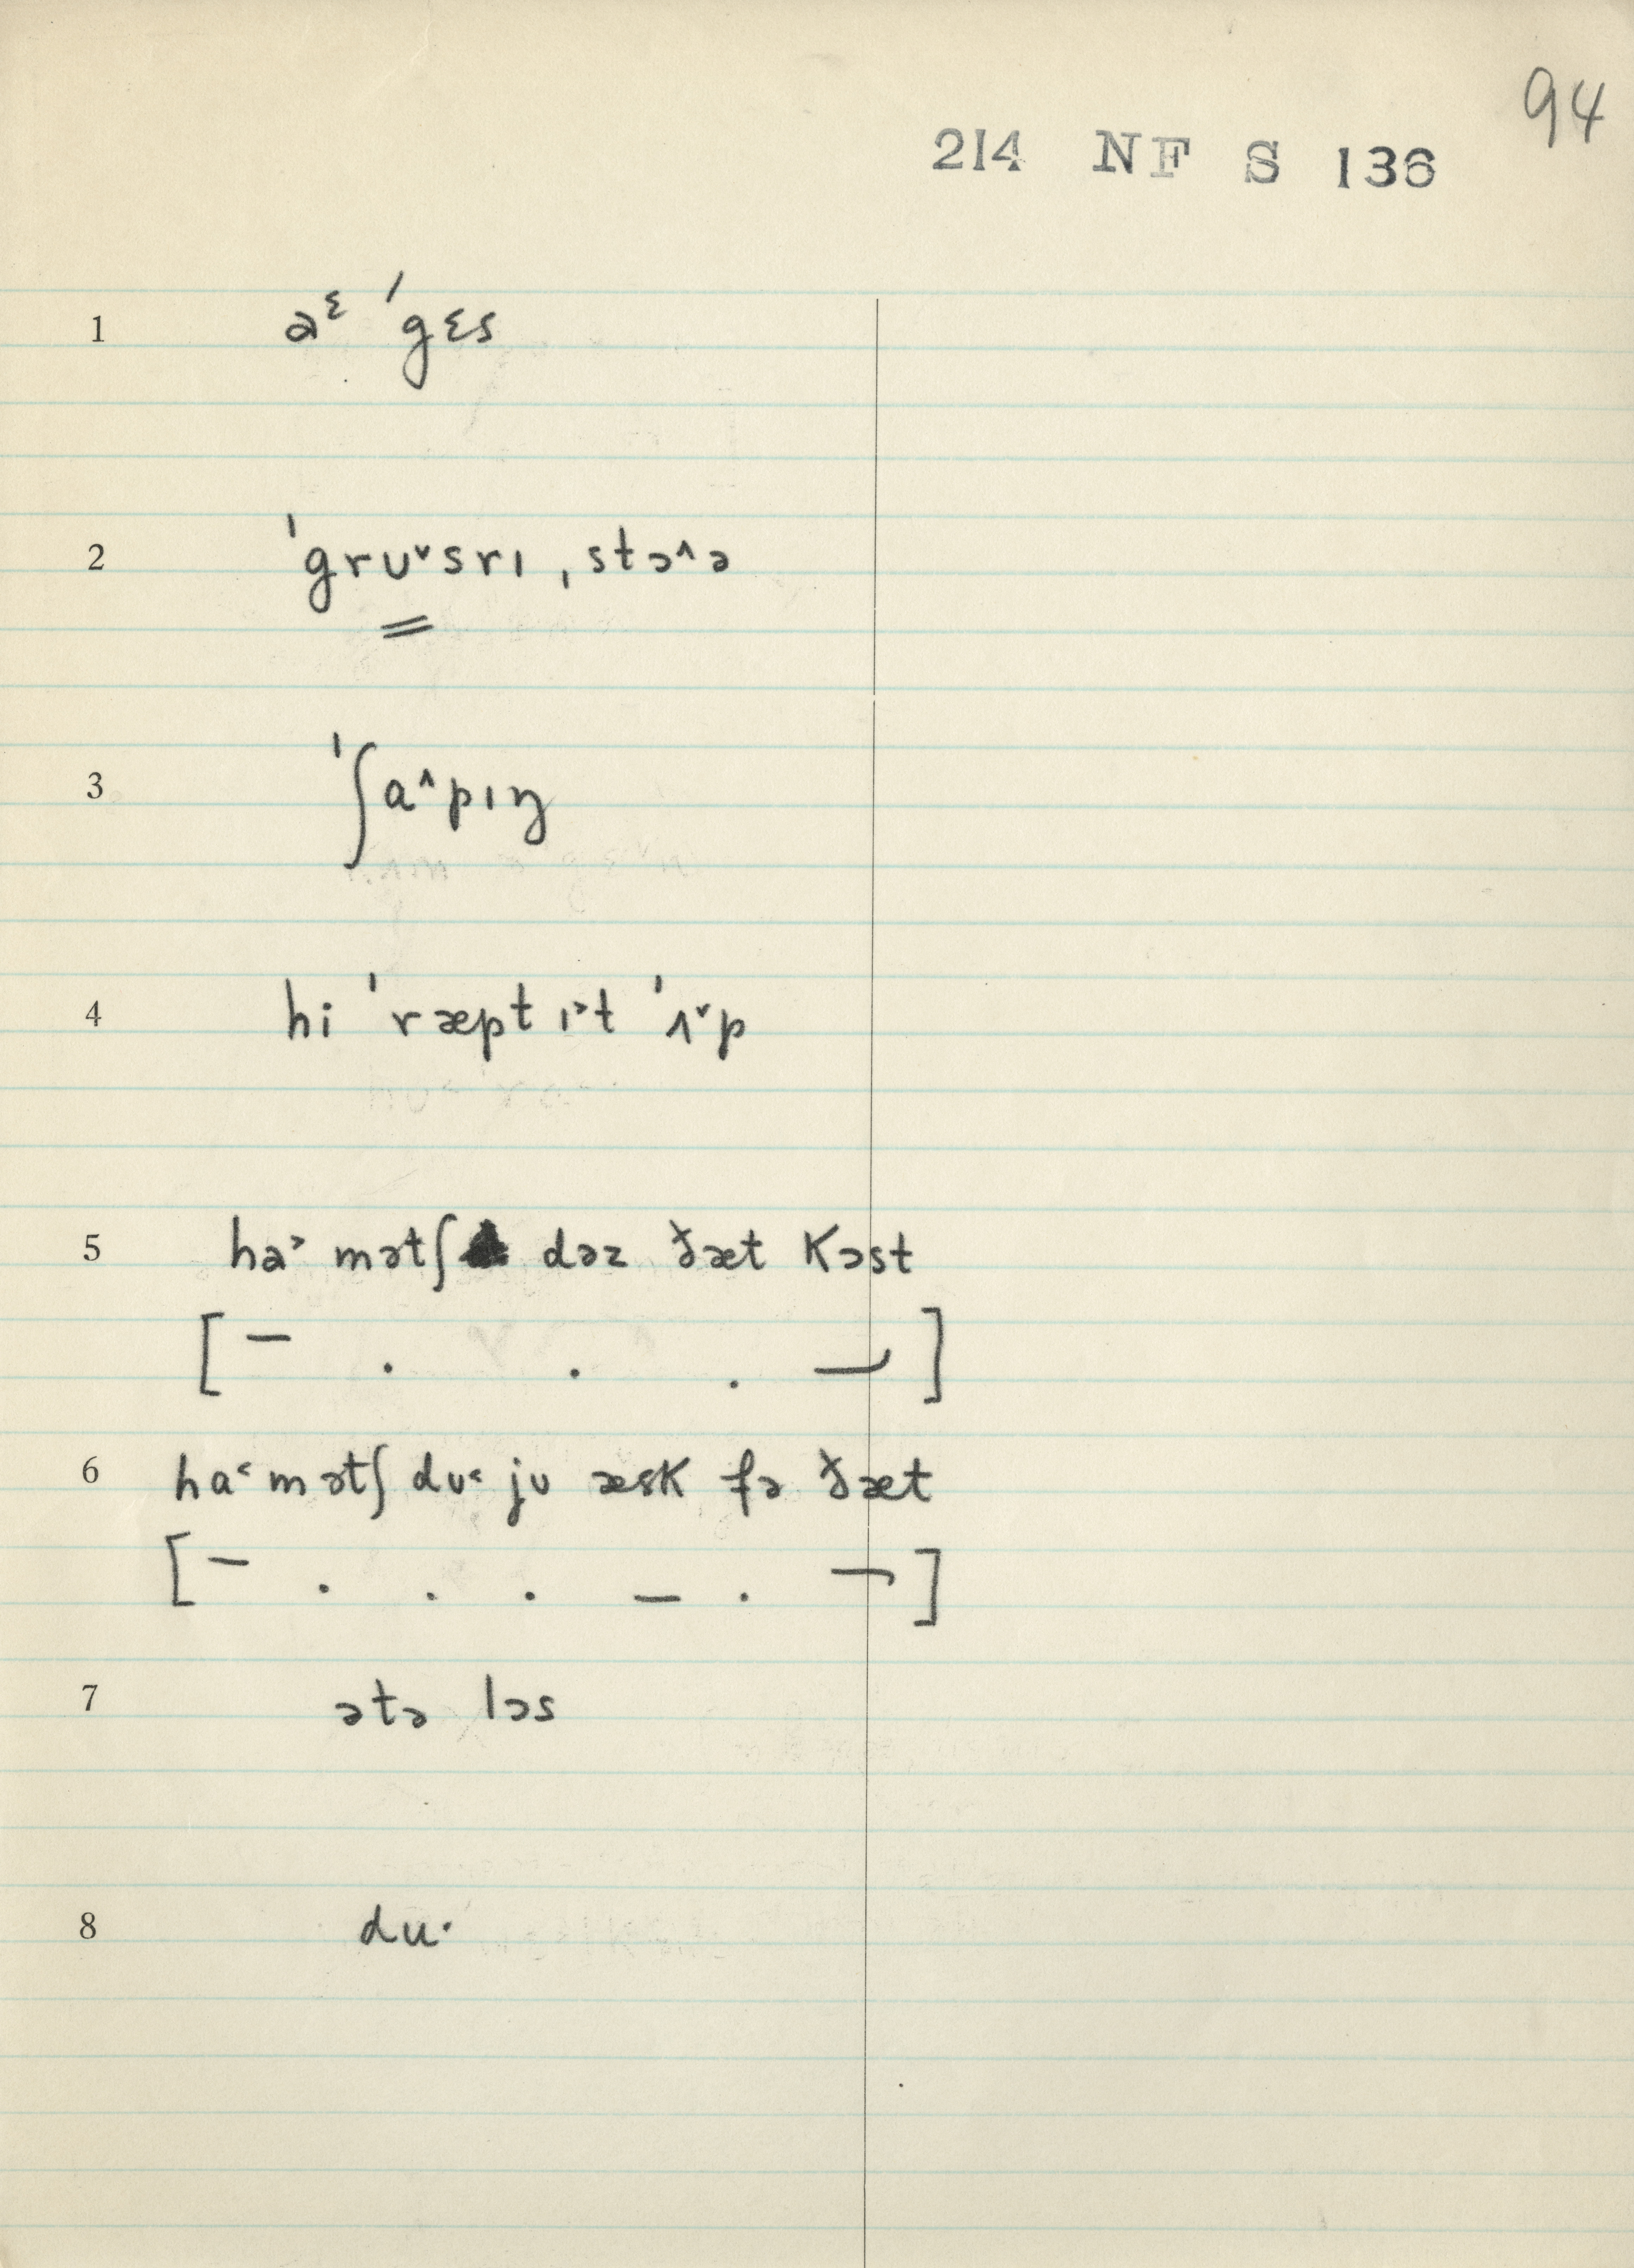 94
214 NF S 136
1 aᵋ ˈgɛs
2 ˈgrʊ˅srɪ ˌstɔ˄ə
3 ˈʃɑ˄pɪŋ
4 hi ˈræpt ɪ˃t ˈʌ˅p
5 ha˃ mətʃ dəz ðæt kɔst
[ – . . . – ]
6 ha˂ mətʃ dʊ˂ jʊ æsk fə ðæt
[ – . . . – . – ]
7 ətə lɔs
8 du·